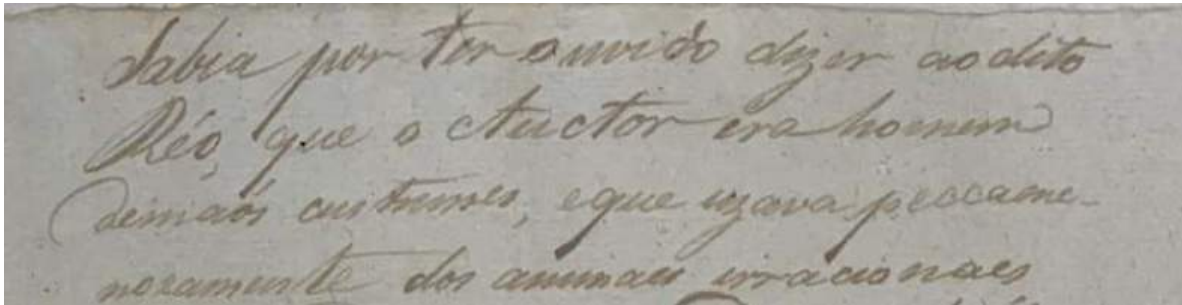 Sabia por ter ouvido dizer ao dito
Réo, que o Auctor era homem
demáos custumes, e que uzava peccame-
nozamente dos animaes irracionaes